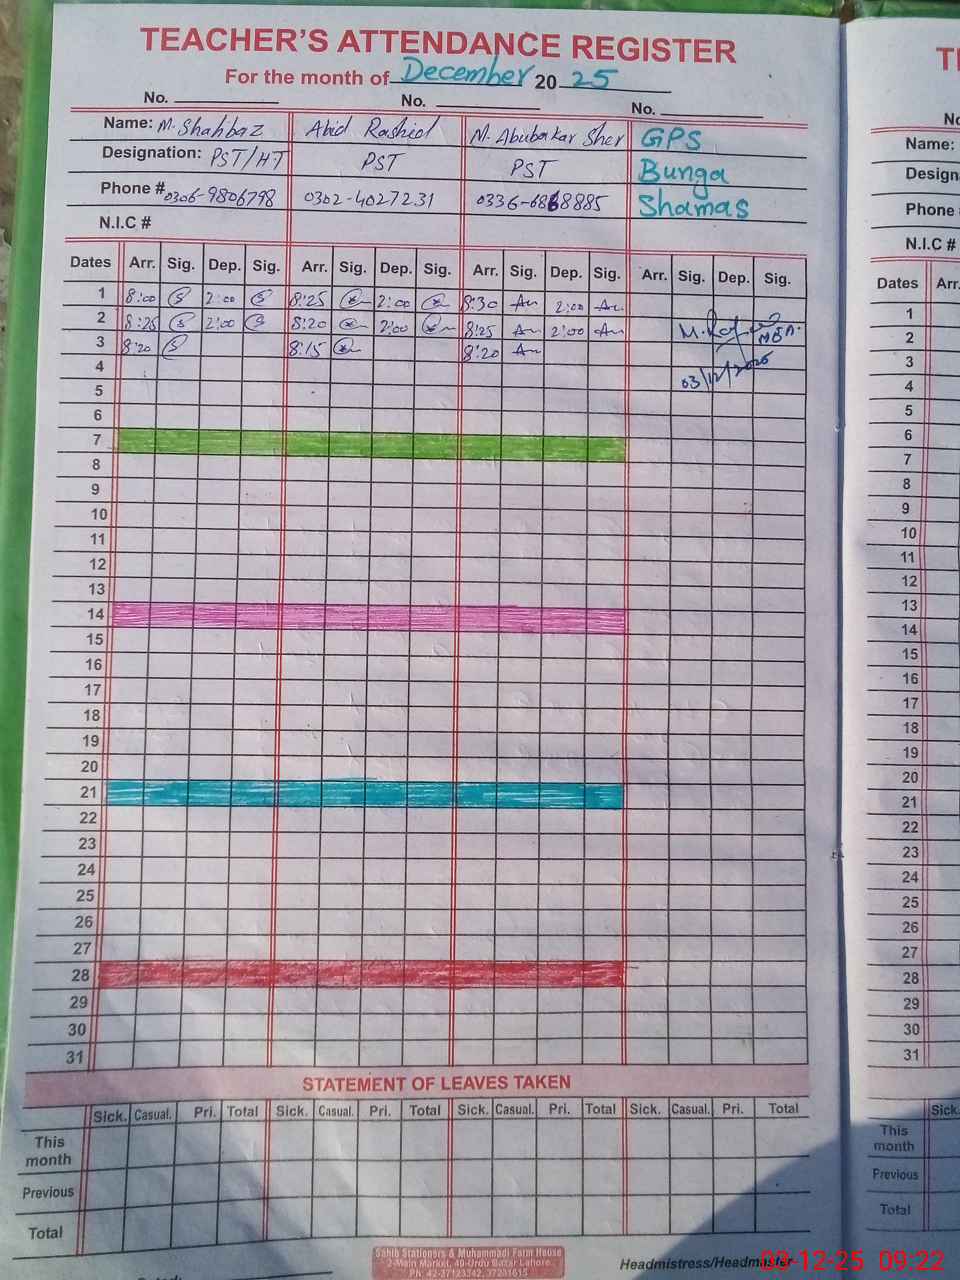 TEACHER'S ATTENDANCE REGISTER
For the month of December 2025
No. No. No.
Name: M. Shahbaz Abid Rashid M. Abubakar Sher GPS
Designation: PST/HT PST PST Bunga
Phone # 0306-9806798 0302-4027231 0336-6868885 Shamas
N.I.C #
Dates Arr. Sig. Dep. Sig. Arr. Sig. Dep. Sig. Arr. Sig. Dep. Sig. Arr. Sig. Dep. Sig.
1 8:00 2:00 8:25 2:00 8:30 2:00
2 8:25 2:00 8:20 2:00 8:25 2:00
3 8:20 8:15 8:20
4 03/12/2025
5
6
7
8
9
10
11
12
13
14
15
16
17
18
19
20
21
22
23
24
25
26
27
28
29
30
31
STATEMENT OF LEAVES TAKEN
Sick. Casual. Pri. Total Sick. Casual. Pri. Total Sick. Casual. Pri. Total Sick. Casual. Pri. Total
This month
Previous
Total
Sahib Stationers & Muhammadi Farm House
2-Main Market, 40-Urdu Bazar Lahore.
Ph: 42-37123342, 37231615
Headmistress/Headmaster
03-12-25 09:22
No
Name:
Design
Phone
N.I.C #
Dates Arr.
1
2
3
4
5
6
7
8
9
10
11
12
13
14
15
16
17
18
19
20
21
22
23
24
25
26
27
28
29
30
31
Sick.
This month
Previous
Total